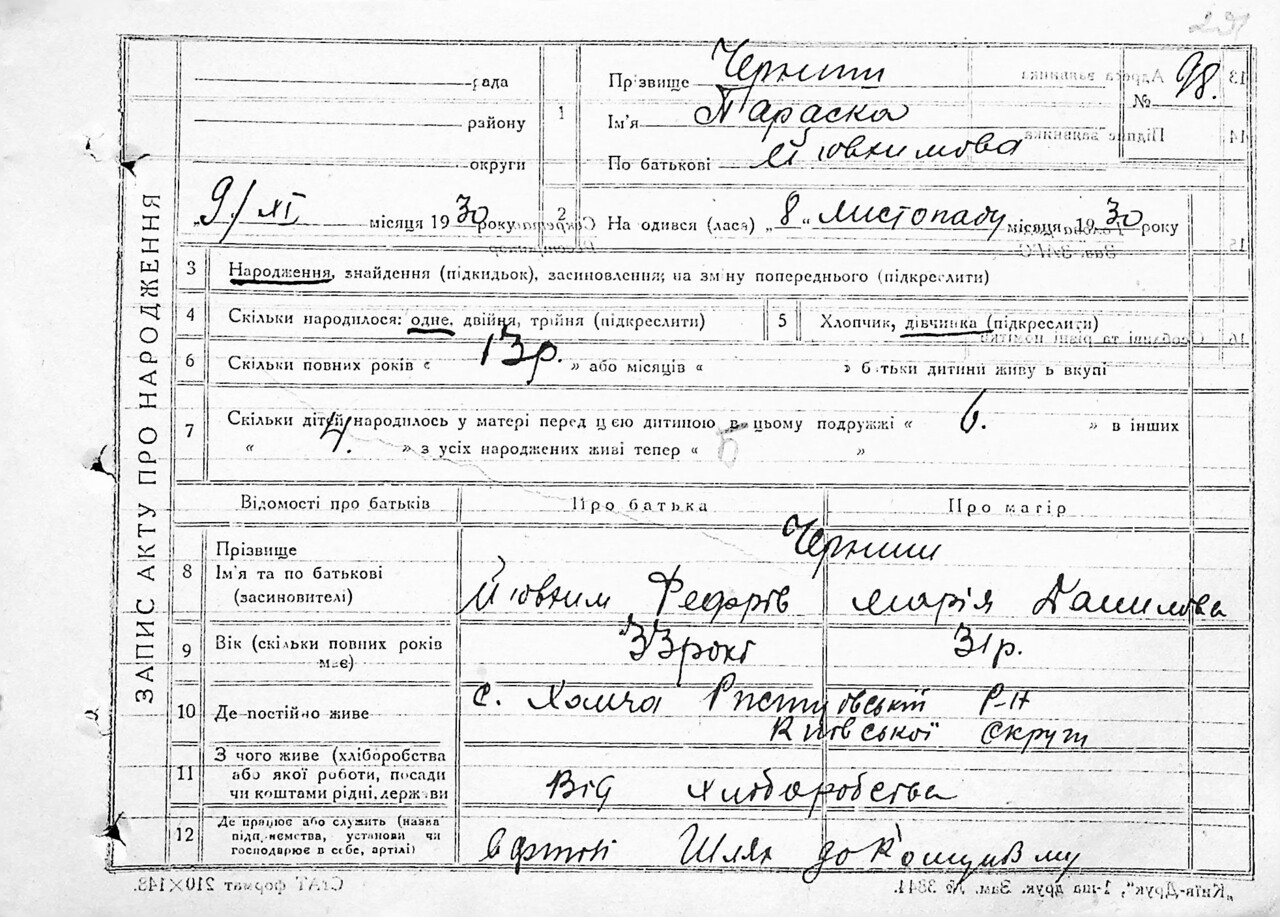 ЗАПИС АКТУ ПРО НАРОДЖЕННЯ
рада
району
округи
„ 9/XI місяця 1930 року
1 Прізвище
Ім'я Параска
По батькові Йовхимова
№ 98.
2 Народився (лася) „ 8 " листопаду місяця 1930 року
3 Народження, знайдення (підкидьок), засиновлення; на зміну попереднього (підкреслити)
4 Скільки народилося: одне, двійня, трійня (підкреслити)
5 Хлопчик, дівчинка (підкреслити)
6 Скільки повних років « 13 р. » або місяців « » батьки дитини живуть вкупі
7 Скільки дітей народилось у матері перед цією дитиною в цьому подружжі « 6. » в інших
« 4. » з усіх народжених живі тепер « 5 »
Відомості про батьків Про батька Про матір
8 Прізвище
Ім'я та по батькові
(засиновителі)
Йовхим Марія Данилова
9 Вік (скільки повних років має) 33 рокі 31 р.
10 Де постійно живе с. Хомча Р-н
Київської Округи
11 З чого живе (хліборобства або якої роботи, посади чи коштами рідні, держави Від хліборобства
12 Де працює або служить (назва підприємства, установи чи господарює в себе, артілі) Шлях до
СтАТ формат 210×148.
„Київ-Друк", 1-ша друк. Зам. № 3841.
13 Адреса заявника
14 Підпис заявника
15
16 Особливі та різні помітки